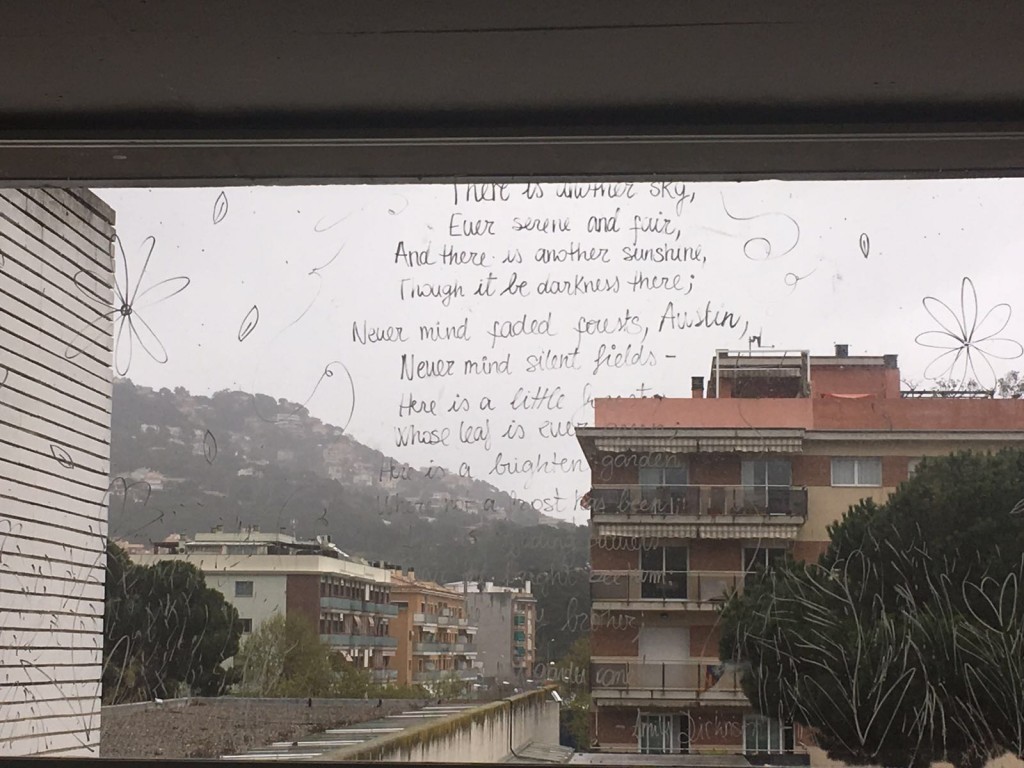 There is another sky,
Ever serene and fair,
And there is another sunshine,
Though it be darkness there;
Never mind faded forests, Austin,
Never mind silent fields -
Here is a little forest
Whose leaf is ever green,
Here is a brighter garden
Where not a frost has been;
bright
brother,
garden come